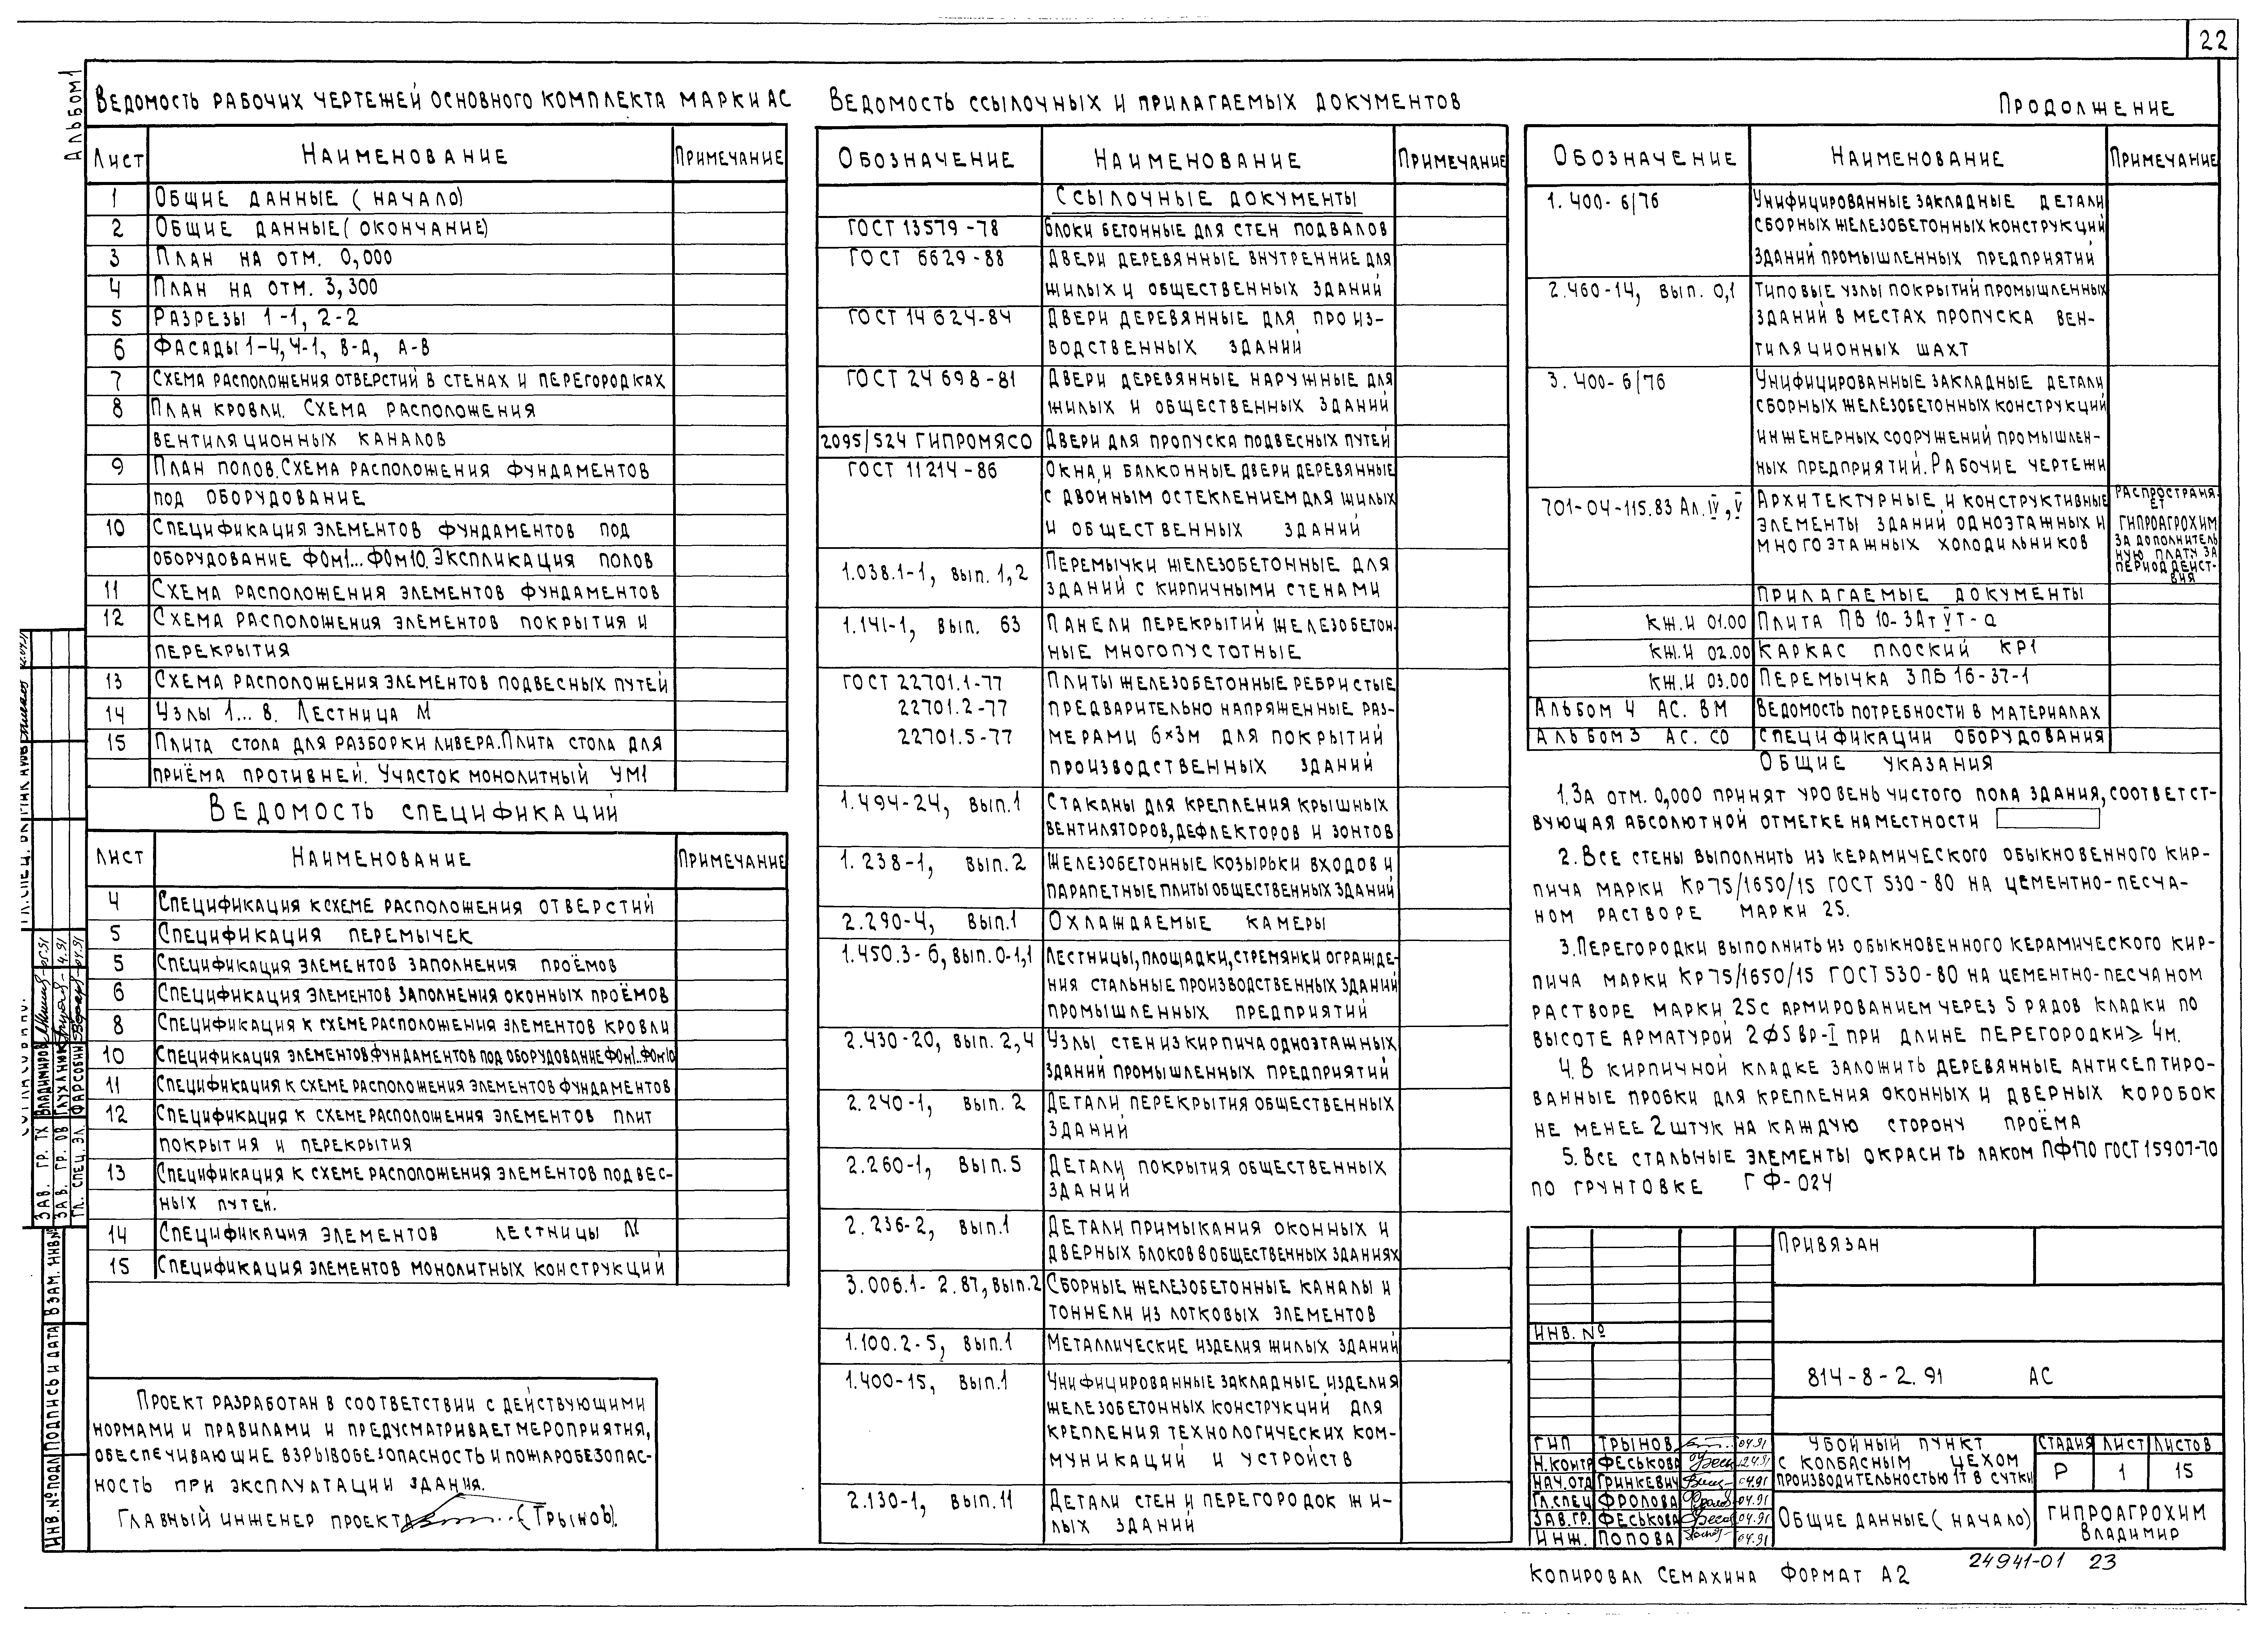 22
Альбом 1
Ведомость рабочих чертежей основного комплекта марки АС
Лист Наименование Примечание
1 Общие данные (начало)
2 Общие данные (окончание)
3 План на отм. 0,000
4 План на отм. 3,300
5 Разрезы 1-1, 2-2
6 Фасады 1-4, 4-1, В-А, А-В
7 Схема расположения отверстий в стенах и перегородках
8 План кровли. Схема расположения
вентиляционных каналов
9 План полов. Схема расположения фундаментов
под оборудование
10 Спецификация элементов фундаментов под
оборудование ФОм1...ФОм10. Экспликация полов
11 Схема расположения элементов фундаментов
12 Схема расположения элементов покрытия и
перекрытия
13 Схема расположения элементов подвесных путей
14 Узлы 1...8. Лестница Л1
15 Плита стола для разборки ливера. Плита стола для
приёма противней. Участок монолитный УМ1
Ведомость спецификаций
Лист Наименование Примечание
4 Спецификация к схеме расположения отверстий
5 Спецификация перемычек
5 Спецификация элементов заполнения проёмов
6 Спецификация элементов заполнения оконных проёмов
8 Спецификация к схеме расположения элементов кровли
10 Спецификация элементов фундаментов под оборудование ФОм1..ФОм10
11 Спецификация к схеме расположения элементов фундаментов
12 Спецификация к схеме расположения элементов плит
покрытия и перекрытия
13 Спецификация к схеме расположения элементов подвес-
ных путей.
14 Спецификация элементов лестницы Л1
15 Спецификация элементов монолитных конструкций
Проект разработан в соответствии с действующими
нормами и правилами и предусматривает мероприятия,
обеспечивающие взрывобезопасность и пожаробезопас-
ность при эксплуатации здания.
Главный инженер проекта (Трынов).
Ведомость ссылочных и прилагаемых документов
Обозначение Наименование Примечание
Ссылочные документы
ГОСТ 13579-78 Блоки бетонные для стен подвалов
ГОСТ 6629-88 Двери деревянные внутренние для
жилых и общественных зданий
ГОСТ 14624-84 Двери деревянные для произ-
водственных зданий
ГОСТ 24698-81 Двери деревянные наружные для
жилых и общественных зданий
2095/524 Гипромясо Двери для пропуска подвесных путей
ГОСТ 11214-86 Окна и балконные двери деревянные
с двойным остеклением для жилых
и общественных зданий
1.038.1-1, вып. 1,2 Перемычки железобетонные для
зданий с кирпичными стенами
1.141-1, вып. 63 Панели перекрытий железобетон-
ные многопустотные
ГОСТ 22701.1-77 Плиты железобетонные ребристые
22701.2-77 предварительно напряженные раз-
22701.5-77 мерами 6×3м для покрытий
производственных зданий
1.494-24, вып.1 Стаканы для крепления крышных
вентиляторов, дефлекторов и зонтов
1.238-1, вып.2 Железобетонные козырьки входов и
парапетные плиты общественных зданий
2.290-4, вып.1 Охлаждаемые камеры
1.450.3-6, вып.0-1,1 Лестницы, площадки, стремянки огражде-
ния стальные производственных зданий
промышленных предприятий
2.430-20, вып.2,4 Узлы стен из кирпича одноэтажных
зданий промышленных предприятий
2.240-1, вып.2 Детали перекрытия общественных
зданий
2.260-1, вып.5 Детали покрытия общественных
зданий
2.236-2, вып.1 Детали примыкания оконных и
дверных блоков в общественных зданиях
3.006.1-2.87, вып.2 Сборные железобетонные каналы и
тоннели из лотковых элементов
1.100.2-5, вып.1 Металлические изделия жилых зданий
1.400-15, вып.1 Унифицированные закладные изделия
железобетонных конструкций для
крепления технологических ком-
муникаций и устройств
2.130-1, вып.11 Детали стен и перегородок жи-
лых зданий
Продолжение
Обозначение Наименование Примечание
1.400-6/76 Унифицированные закладные детали
сборных железобетонных конструкций
зданий промышленных предприятий
2.460-14, вып. 0,1 Типовые узлы покрытий промышленных
зданий в местах пропуска вен-
тиляционных шахт
3.400-6/76 Унифицированные закладные детали
сборных железобетонных конструкций
инженерных сооружений промышлен-
ных предприятий. Рабочие чертежи
701-04-115.83 Ал.IV,V Архитектурные и конструктивные
элементы зданий одноэтажных и
многоэтажных холодильников
распространя-
ет
Гипроагрохим
за дополнитель
ную плату за
период дейст-
вия
Прилагаемые документы
КЖ.И 01.00 Плита ПВ 10-3АтVТ-а
КЖ.И 02.00 Каркас плоский КР1
КЖ.И 03.00 Перемычка 3ПБ16-37-1
Альбом 4 АС. ВМ Ведомость потребности в материалах
Альбом 3 АС. СО Спецификации оборудования
Общие указания
1. За отм. 0,000 принят уровень чистого пола здания, соответст-
вующая абсолютной отметке на местности
2. Все стены выполнить из керамического обыкновенного кир-
пича марки Кр75/1650/15 ГОСТ 530-80 на цементно-песча-
ном растворе марки 25.
3. Перегородки выполнить из обыкновенного керамического кир-
пича марки Кр75/1650/15 ГОСТ 530-80 на цементно-песчаном
растворе марки 25 с армированием через 5 рядов кладки по
высоте арматурой 2Ф5Вр-I при длине перегородки ≥ 4м.
4. В кирпичной кладке заложить деревянные антисептиро-
ванные пробки для крепления оконных и дверных коробок
не менее 2 штук на каждую сторону проёма
5. Все стальные элементы окрасить лаком ПФ170 ГОСТ 15907-70
по грунтовке ГФ-024
Привязан
Инв. №
814-8-2.91 АС
ГИП Трынов 04.91
Н.контр Феськова 12.4.91
Нач.отд Гринкевич 04.91
Гл.спец Фролова 04.91
Зав.гр. Феськова 04.91
Инж. Попова 04.91
Убойный пункт
с колбасным цехом
производительностью 1т в сутки
Стадия Лист Листов
Р 1 15
Общие данные (начало)
Гипроагрохим
Владимир
Копировал Семахина Формат А2
24941-01 23
Зав. гр. ТХ Владимиров
Зав. гр. ОВ Глуханюк 4.91
Гл. спец. эл. Фарсобин 04.91
Инв.№ подл Подпись и дата Взам. инв.№